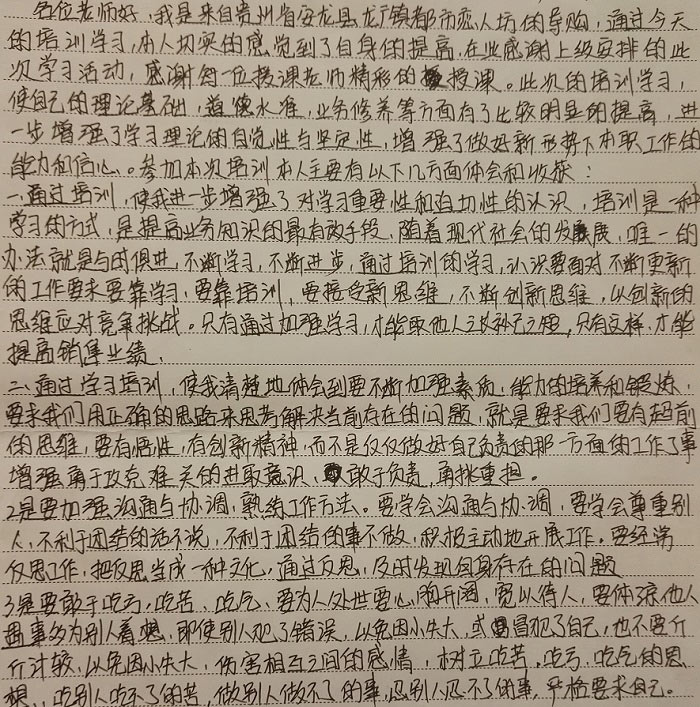 各位老师好，我是来自贵州省安龙县龙广镇都市恋人坊的导购，通过今天
的培训学习，本人切实的感觉到了自身的提高，在此感谢上级安排的此
次学习活动，感谢每一位授课老师精彩的授课。此次的培训学习，
使自己的理论基础，道德水准，业务修养等方面有了比较明显的提高，进
一步增强了学习理论的自觉性与坚定性，增强了做好新形势下本职工作的
能力和信心。参加本次培训本人主要有以下几方面体会和收获：
一.通过培训，使我进一步增强了对学习重要性和迫切性的认识，培训是一种
学习的方式，是提高业务知识的最有效手段，随着现代社会的发展，唯一的
办法就是与时俱进，不断学习，不断进步，通过培训的学习，认识要面对不断更新
的工作要求要靠学习，要靠培训，要接受新思维，不断创新思维，以创新的
思维应对竞争挑战。只有通过加强学习，才能取他人之长补己之短，只有这样，才能
提高销售业绩，
二.通过学习培训，使我清楚地体会到要不断加强素质，能力的培养和锻炼，
要求我们用正确的思路来思考解决当前存在的问题，就是要求我们要有超前
的思维，要有悟性，有创新精神，而不是仅仅做好自己负责的那一方面的工作了事
增强勇于攻克难关的进取意识，敢于负责，勇挑重担。
2是要加强沟通与协调，熟练工作方法。要学会沟通与协调，要学会尊重别
人，不利于团结的话不说，不利于团结的事不做，积极主动地开展工作。要经常
反思工作，把反思当成一种文化，通过反思，及时发现自身存在的问题
3是要敢于吃亏，吃苦、吃气，要为人处世要心胸开阔，宽以待人，要体谅他人
遇事多为别人着想，即使别人犯了错误，以免因小失大，或冒犯了自己，也不要斤
斤计较，以免因小失大，伤害相互之间的感情，树立吃苦、吃亏、吃气的思
想，吃别人吃不了的苦，做别人做不了的事，忍别人忍不了的事，严格要求自己。